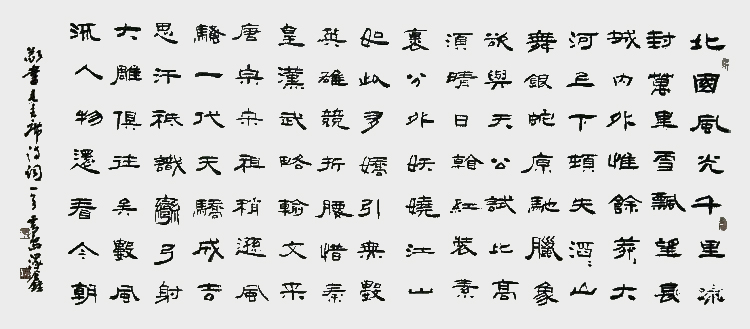 北國風光千里冰
封萬里雪飄望長
城内外惟餘莽大
河上下頓失滔〻山
舞銀蛇原馳臘象
欲與天公試比高
須晴日看紅裝素
裹分外妖嬈江山
如此多嬌引無數
英雄競折腰惜秦
皇漢武略輸文采
唐宗宋祖稍遜風
騷一代天驕成吉
思汗祇識彎弓射
大雕俱往矣數風
流人物還看今朝
敬書毛主席詩詞一首